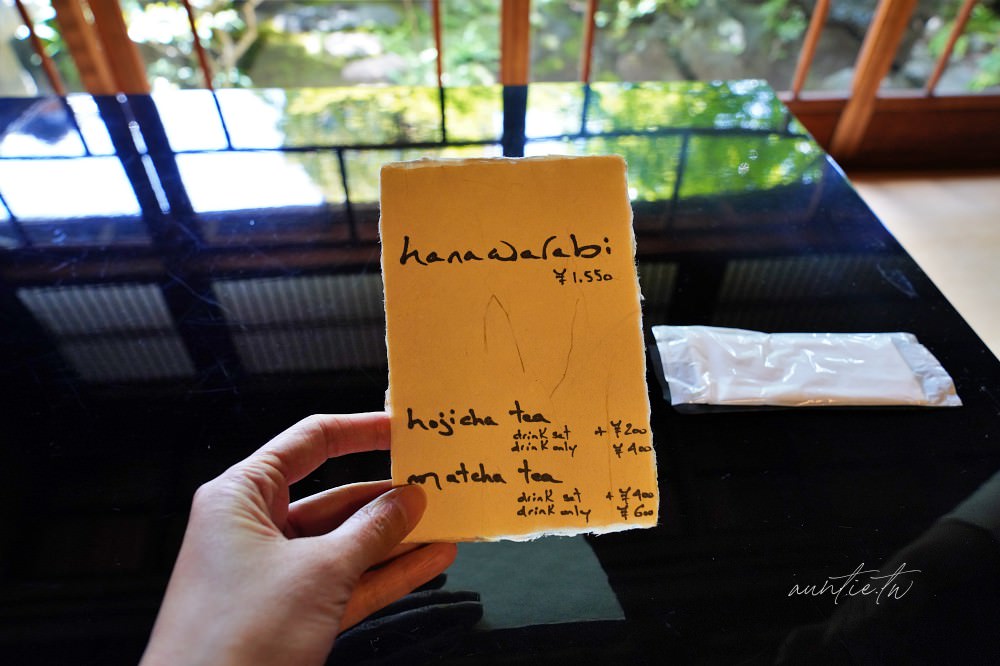 hanawarabi
¥1.550
hojicha tea
drink set + ¥200
drink only ¥400
matcha tea
drink set + ¥400
drink only ¥600
auntie.tw